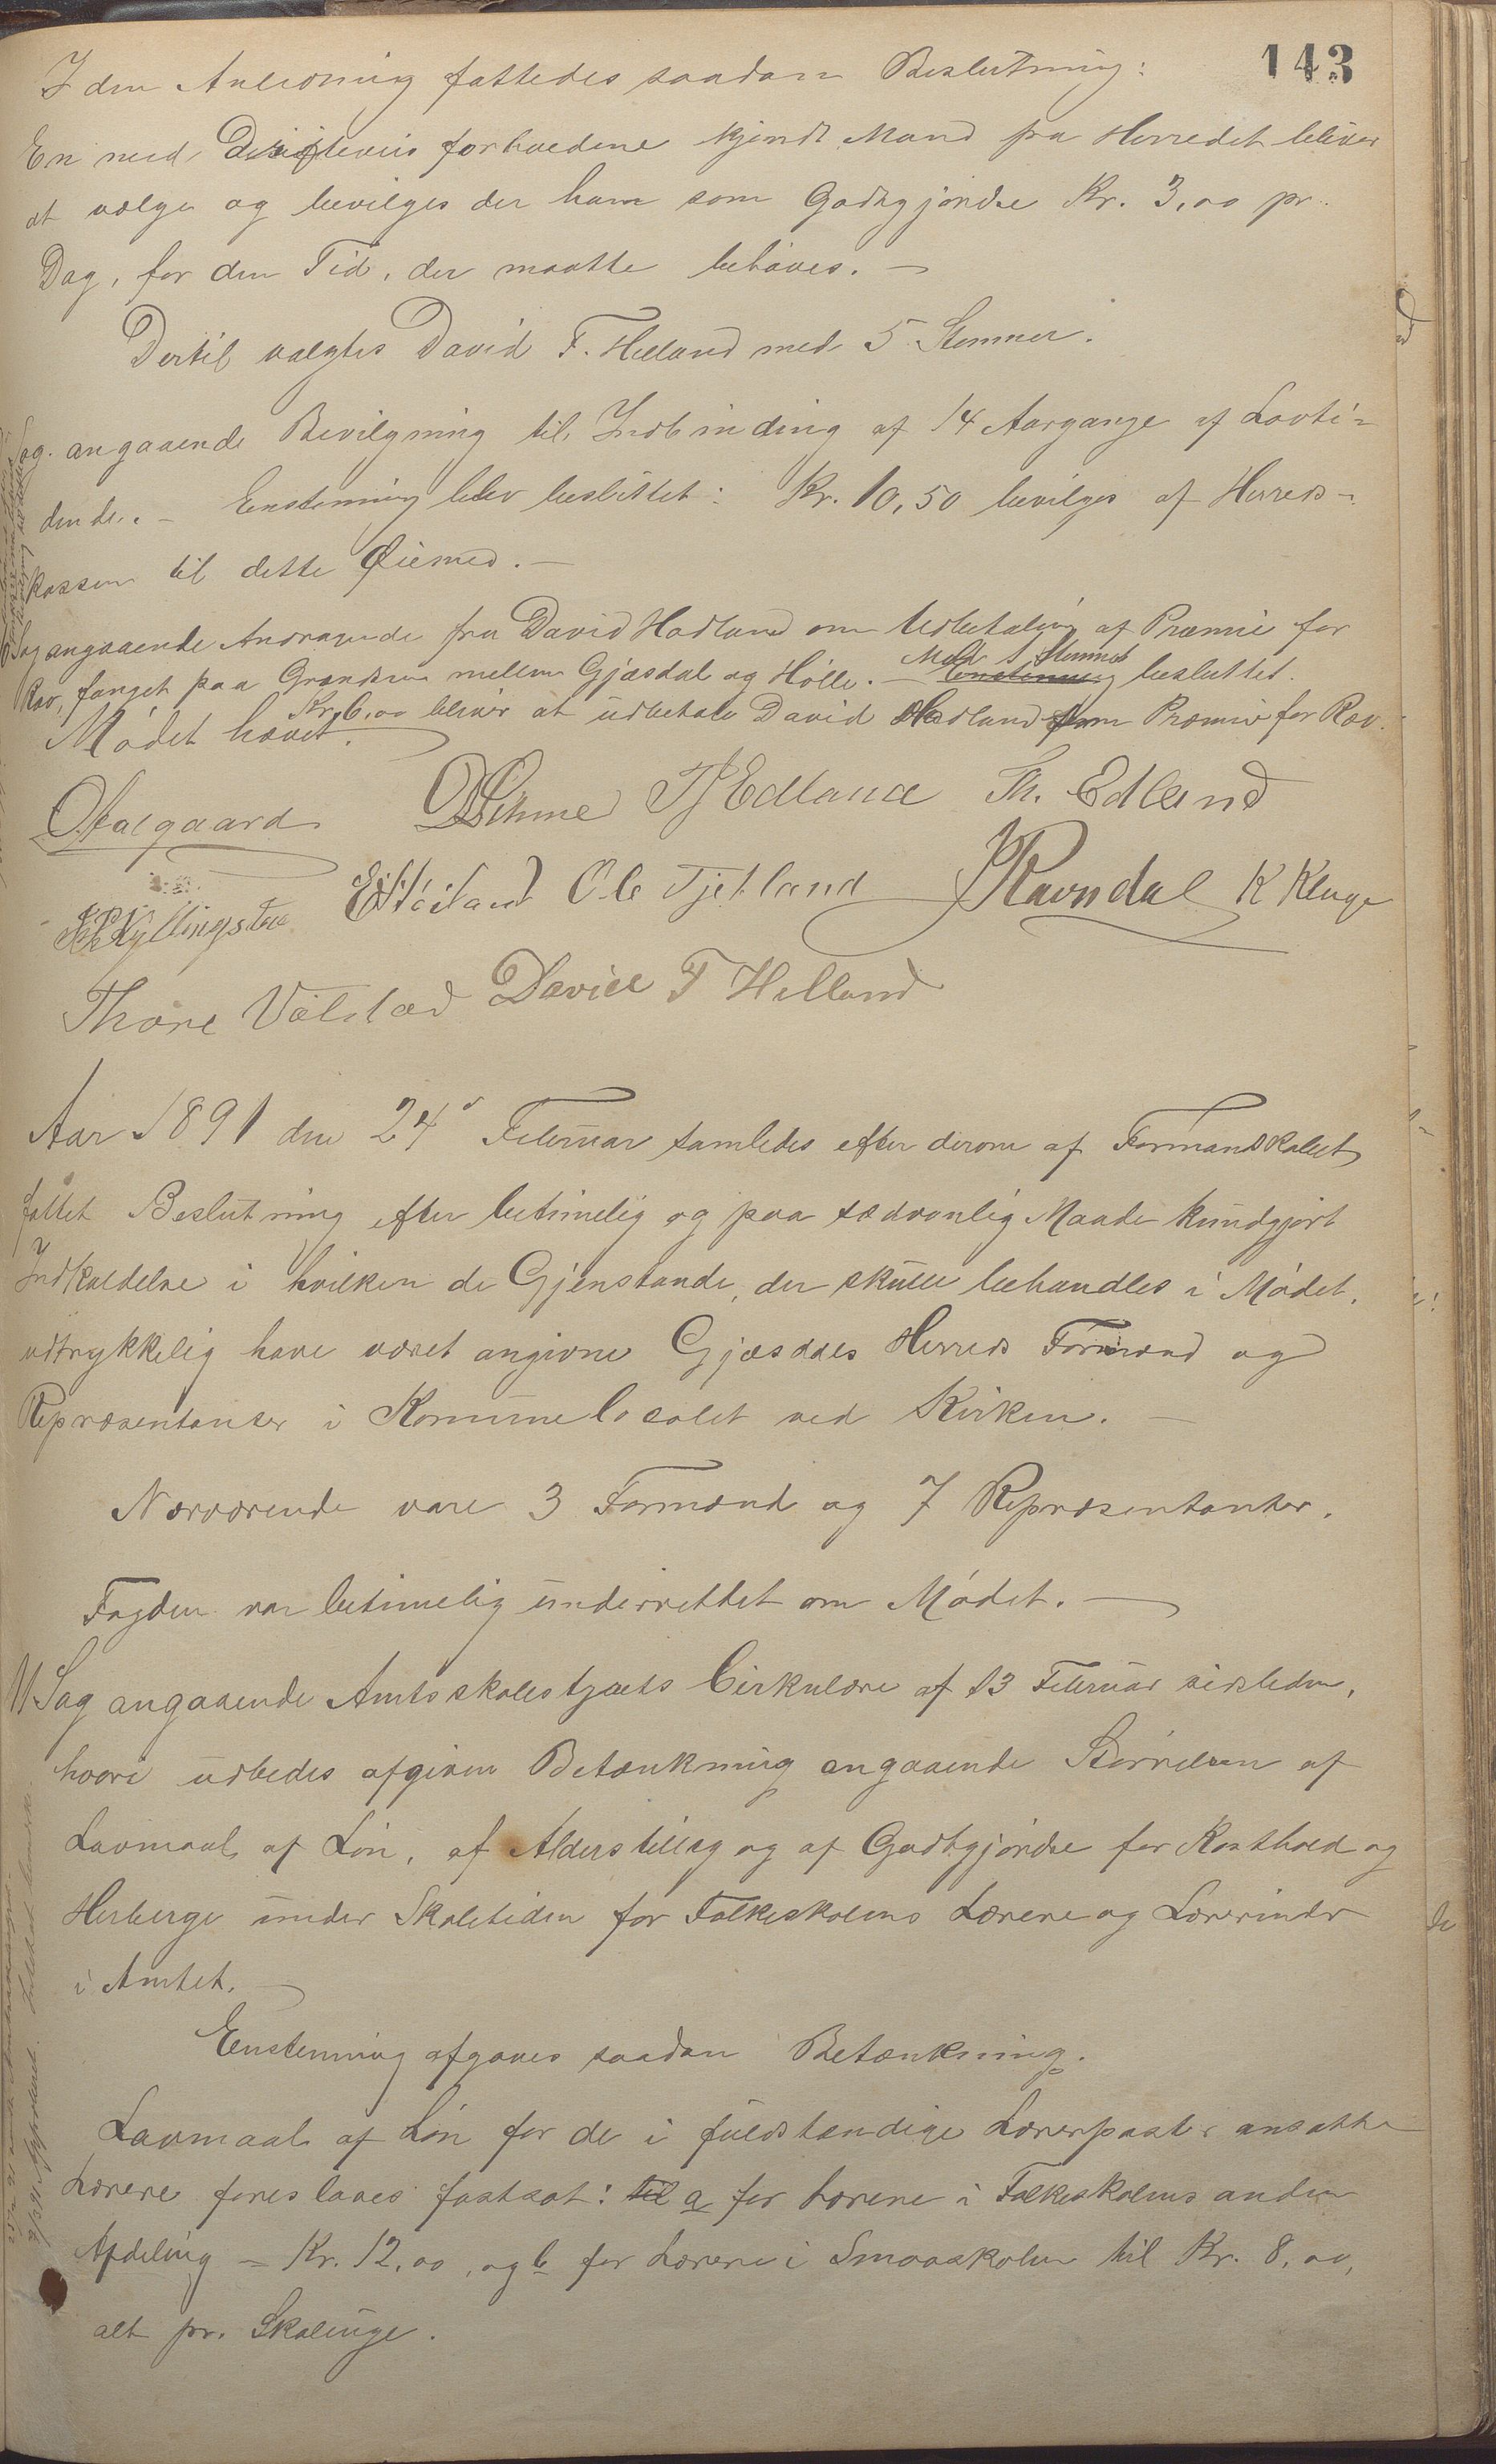 143
I den Anledning fattedes saadan Beslutning:
En med forholdene kjendt Mand fra Herredet bliver
at vælge og bevilges der ham som Godtgjørelse Kr. 3,00 pr.
Dag, for den Tid, der maatte behøves. —
Dertil valgtes David T. Helland med 5 Stemmer.
Sag angaaende Bevilgning til Indbinding af 14 Aargange af Lovti-
dende. — Enstemmig blev besluttet: Kr. 10,50 bevilges af Herreds-
kassen til dette Øiemed. —
Sag angaaende Andragende fra David Hadland om Udbetaling af Præmie for
Ræv, fanget paa Grændsen mellem Gjæsdal og Hølle. — Med Stemmer besluttet.
Kr. 6,00 bliver at udbetale David Hadland som Præmie for Ræv.
Mødet hævet.
O. Aalgaard Th. Edland
Ole Tjetland Ravndal K Kluge
Thore Valstad David T Helland
Aar 1891 den 24d Februar samledes efter derom af Formandskabet
fattet Beslutning efter betimelig og paa sædvanlig Maade kundgjort
Indkaldelse i hvilken de Gjenstande, der skulle behandles i Mødet,
udtrykkelig have været angivne Gjæsdals Herreds Formænd og
Repræsentanter i Kommunelocalet ved Kirken. —
Nærværende vare 3 Formænd og 7 Repræsentanter.
Fogden var betimelig underrettet om Mødet. —
Sag angaaende Amtsskolestyrets Cirkulære af 13 Februar sidstleden,
hvori udbedes afgiven Betænkning angaaende Størrelsen af
Lavmaal af Løn, af Alderstillæg og af Godtgjørelse for Kosthold og
Herberge under Skoletiden for Folkeskolens Lærere og Lærerinder
i Amtet. —
Eenstemmig afgaves saadan Betænkning.
Lavmaal af Løn for de i fuldstændige Lærerposter ansatte
Lærere foreslaaes fastsat: til a for Lærere i Folkeskolens anden
Afdeling = Kr. 12,00, og b for Lærere i Smaaskolen til Kr. 8,00,
alt pr. Skoleuge.